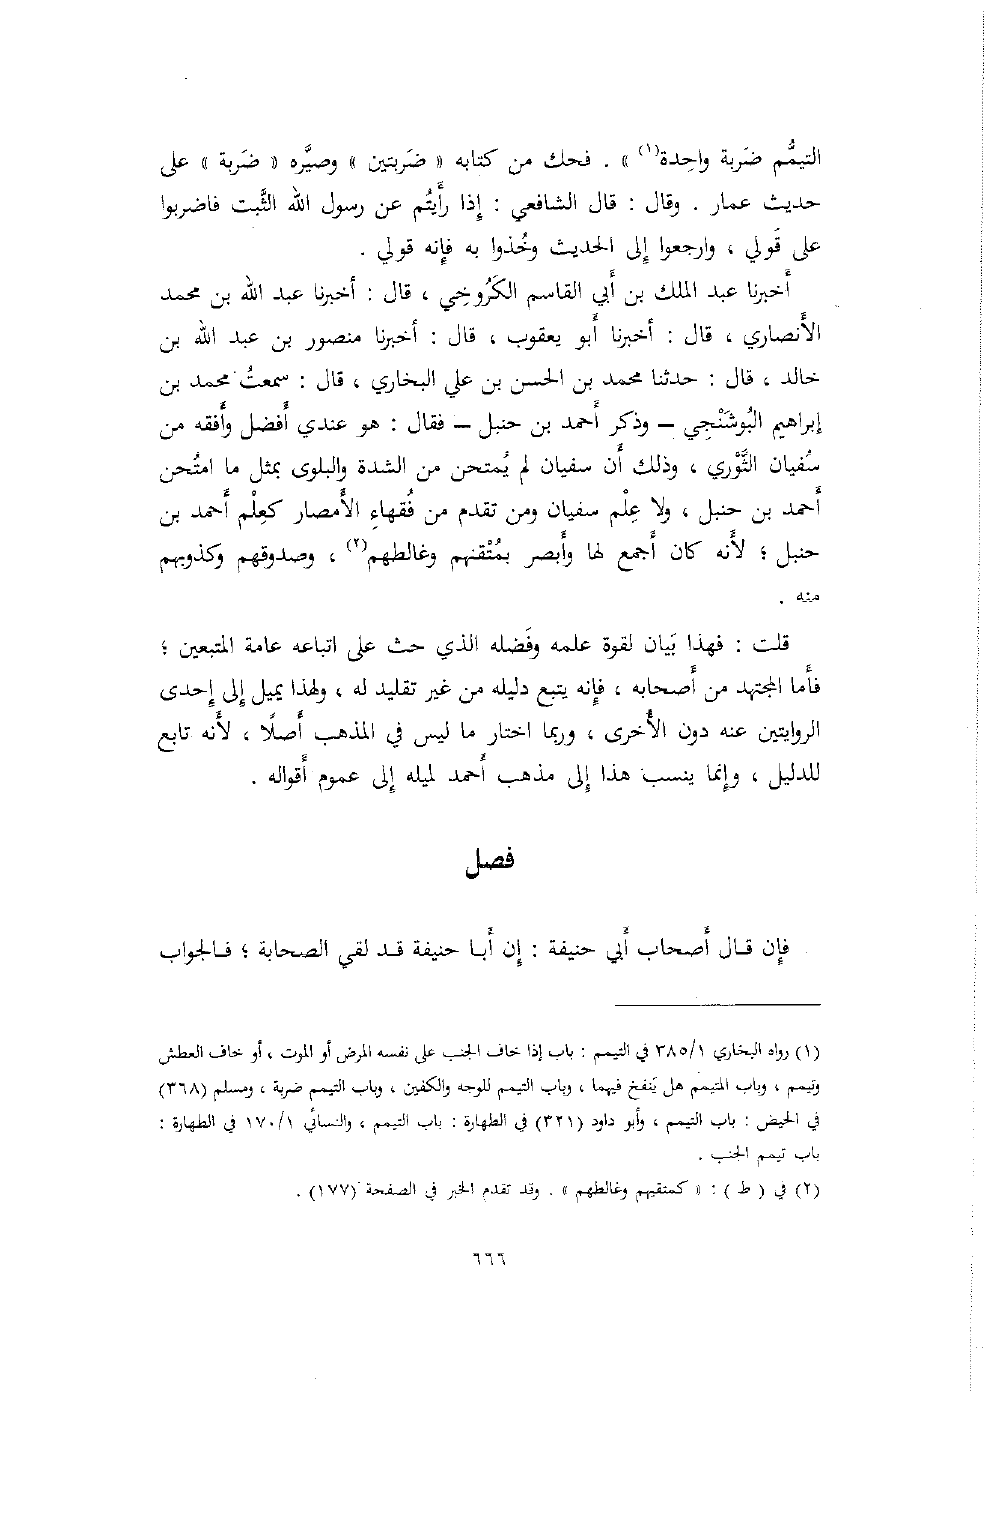 التيمُّم ضَربة واحِدة(١) » . فحك من كتابه « ضَربتين » وصيَّره « ضَربة » على
حديث عمار . وقال : قال الشافعي : إذا رأيتُم عن رسول الله الثَّبت فاضربوا
على قَولي ، وارجعوا إلى الحديث وخُذوا به فإنه قولي .
أخبرنا عبد الملك بن أبي القاسم الكَرُوخِي ، قال : أخبرنا عبد الله بن محمد
الأنصاري ، قال : أخبرنا أبو يعقوب ، قال : أخبرنا منصور بن عبد الله بن
خالد ، قال : حدثنا محمد بن الحسن بن علي البخاري ، قال : سمعتُ محمد بن
إبراهيم البُوشَنْجِي – وذكر أحمد بن حنبل – فقال : هو عندي أفضل وأفقه من
سُفيان الثَّوْري ، وذلك أن سفيان لم يُمتحن من الشدة والبلوى بمثل ما امتُحن
أحمد بن حنبل ، ولا عِلْم سفيان ومن تقدم من فُقهاءِ الأمصار كعِلْم أحمد بن
حنبل ؛ لأنه كان أجمع لها وأبصر بمُتْقنهم وغالطهم(٢) ، وصدوقهم وكذوبهم
منه .
قلت : فهذا بَيان لقوة علمه وفَضله الذي حث على اتباعه عامة المتبعين ؛
فأما المجتهد من أصحابه ، فإنه يتبع دليله من غير تقليد له ، ولهذا يميل إلى إحدى
الروايتين عنه دون الأُخرى ، وربما اختار ما ليس في المذهب أصلًا ، لأنه تابع
للدليل ، وإنما ينسب هذا إلى مذهب أحمد لميله إلى عموم أقواله .
فصل
فإن قال أصحاب أبي حنيفة : إن أبا حنيفة قد لقي الصحابة ؛ فالجواب
(١) رواه البخاري ٣٨٥/١ في التيمم : باب إذا خاف الجنب على نفسه المرض أو الموت ، أو خاف العطش
وتيمم ، وباب المتيمم هل يَنفخ فيهما ، وباب التيمم للوجه والكفين ، وباب التيمم ضربة ، ومسلم (٣٦٨)
في الحيض : باب التيمم ، وأبو داود (٣٢١) في الطهارة : باب التيمم ، والنسائي ١٧٠/١ في الطهارة :
باب تيمم الجنب .
(٢) في ( ط ) : « كمتقيهم وغالطهم » . وقد تقدم الخبر في الصفحة (١٧٧) .
٦٦٦